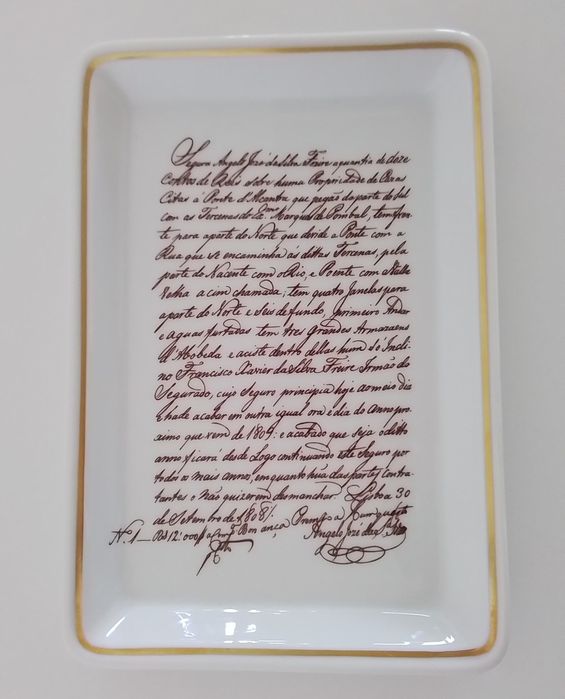 Segura Angelo Jozé da Silva Freire a quantia de doze
Contos de Reis sobre huma Propriedade de Cazas
Citas a Ponte d'Alcantra que pegão da parte do Sul
com as Tercenas do Ex.mo Marques de Pombal, tem fren-
te para a parte do Norte que devide a Ponte com a
Rua que se encaminha ás dittas Tercenas, pela
parte do Nacente com o Rio, e Poente com
Velha a cim chamada; tem quatro Janelas para
a parte do Norte e Seis de fundo, primeiro Andar
e aguas furtadas tem tres Grandes Armazaens
d'Abobeda e aciste dentro dellas hum só Incli-
no Francisco Xavier da Silva Freire Irmão do
Segurado, cujo Seguro principia hoje ao meio dia
E hade acabar em outra igual ora e dia do anno pro-
ximo que vem de 1809: e acabado que seja o ditto
anno ficará desde Logo continuando este Seguro por
todos os mais annos, em quanto húa das partes contra-
tantes o não quizerem desmanchar. Lisboa 30
de Setembro de 1808/.
N.º 1 — R.s 12:000/ Bonança
Angelo José da S.ª Freire